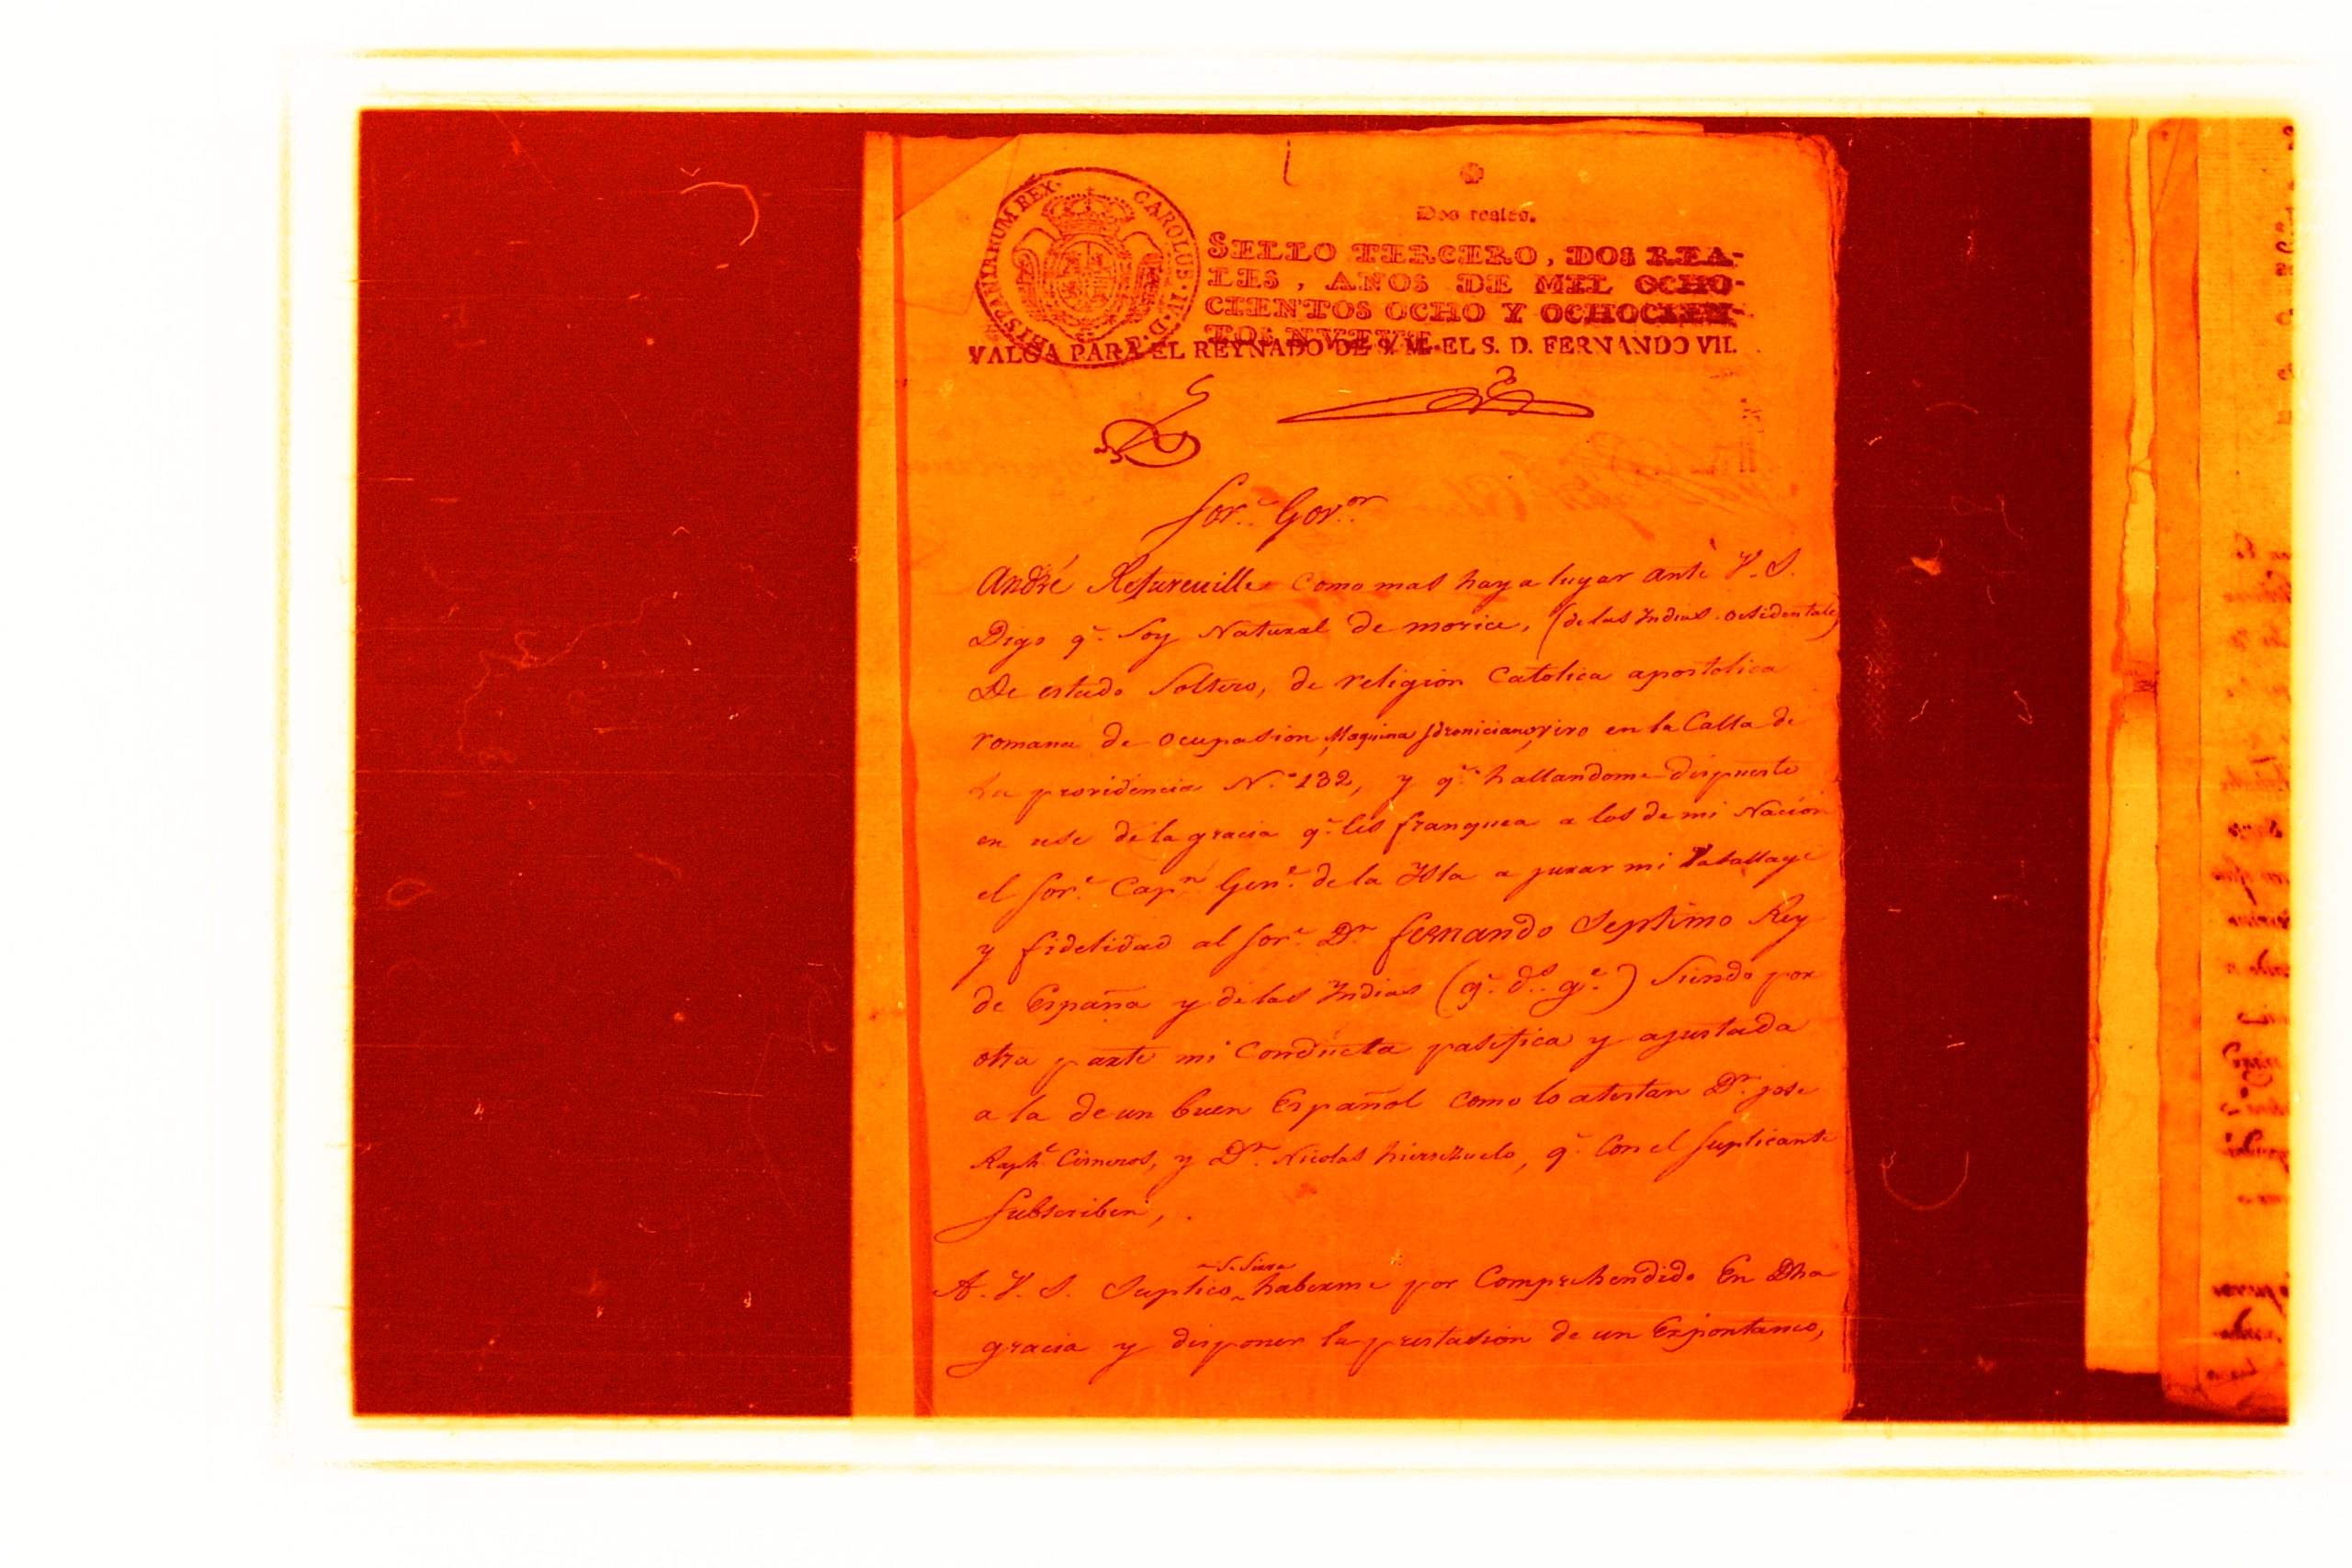 HISPANIARUM REX. CAROLUS · IV · D. G.
Dos reales.
SELLO TERCERO, DOS REA-
LES, AÑOS DE MIL OCHO-
CIENTOS OCHO Y OCHOCIEN-
TOS NUEVE.
VALGA PARA EL REYNADO DE S. M. EL S. D. FERNANDO VII.
Sor.e Gov.or
André como mas haya lugar ante V. S.
Digo q.e Soy Natural de morice, (de las Indias ocsidentales)
De estado Soltero, de religion Catolica apostolica
romana de ocupasion Maquina vivo en la Calla de
La providencia N.o 132, y q.e hallandome dispuesto
en use de la gracia q.e les franquea a los de mi Nacion
el Sor.e Cap.n Gen.e de la Ysla a jurar mi Vasallage
y fidelidad al Sor.e D.n fernando Septimo Rey
de España y de las Indias (q.e D.s g.e) Siendo por
otra parte mi Conducta pasifica y ajustada
a la de un buen Español como lo atestan D.n jose
Raph.l Cisneros, y D.n Nicolas hierrezuelo, q.e Con el Suplicante
Subscriben,
Se Sirva
A. V. S. Suplico haberme por Comprehendido En Dha
gracia y disponer la prestasion de un Expontaneo,